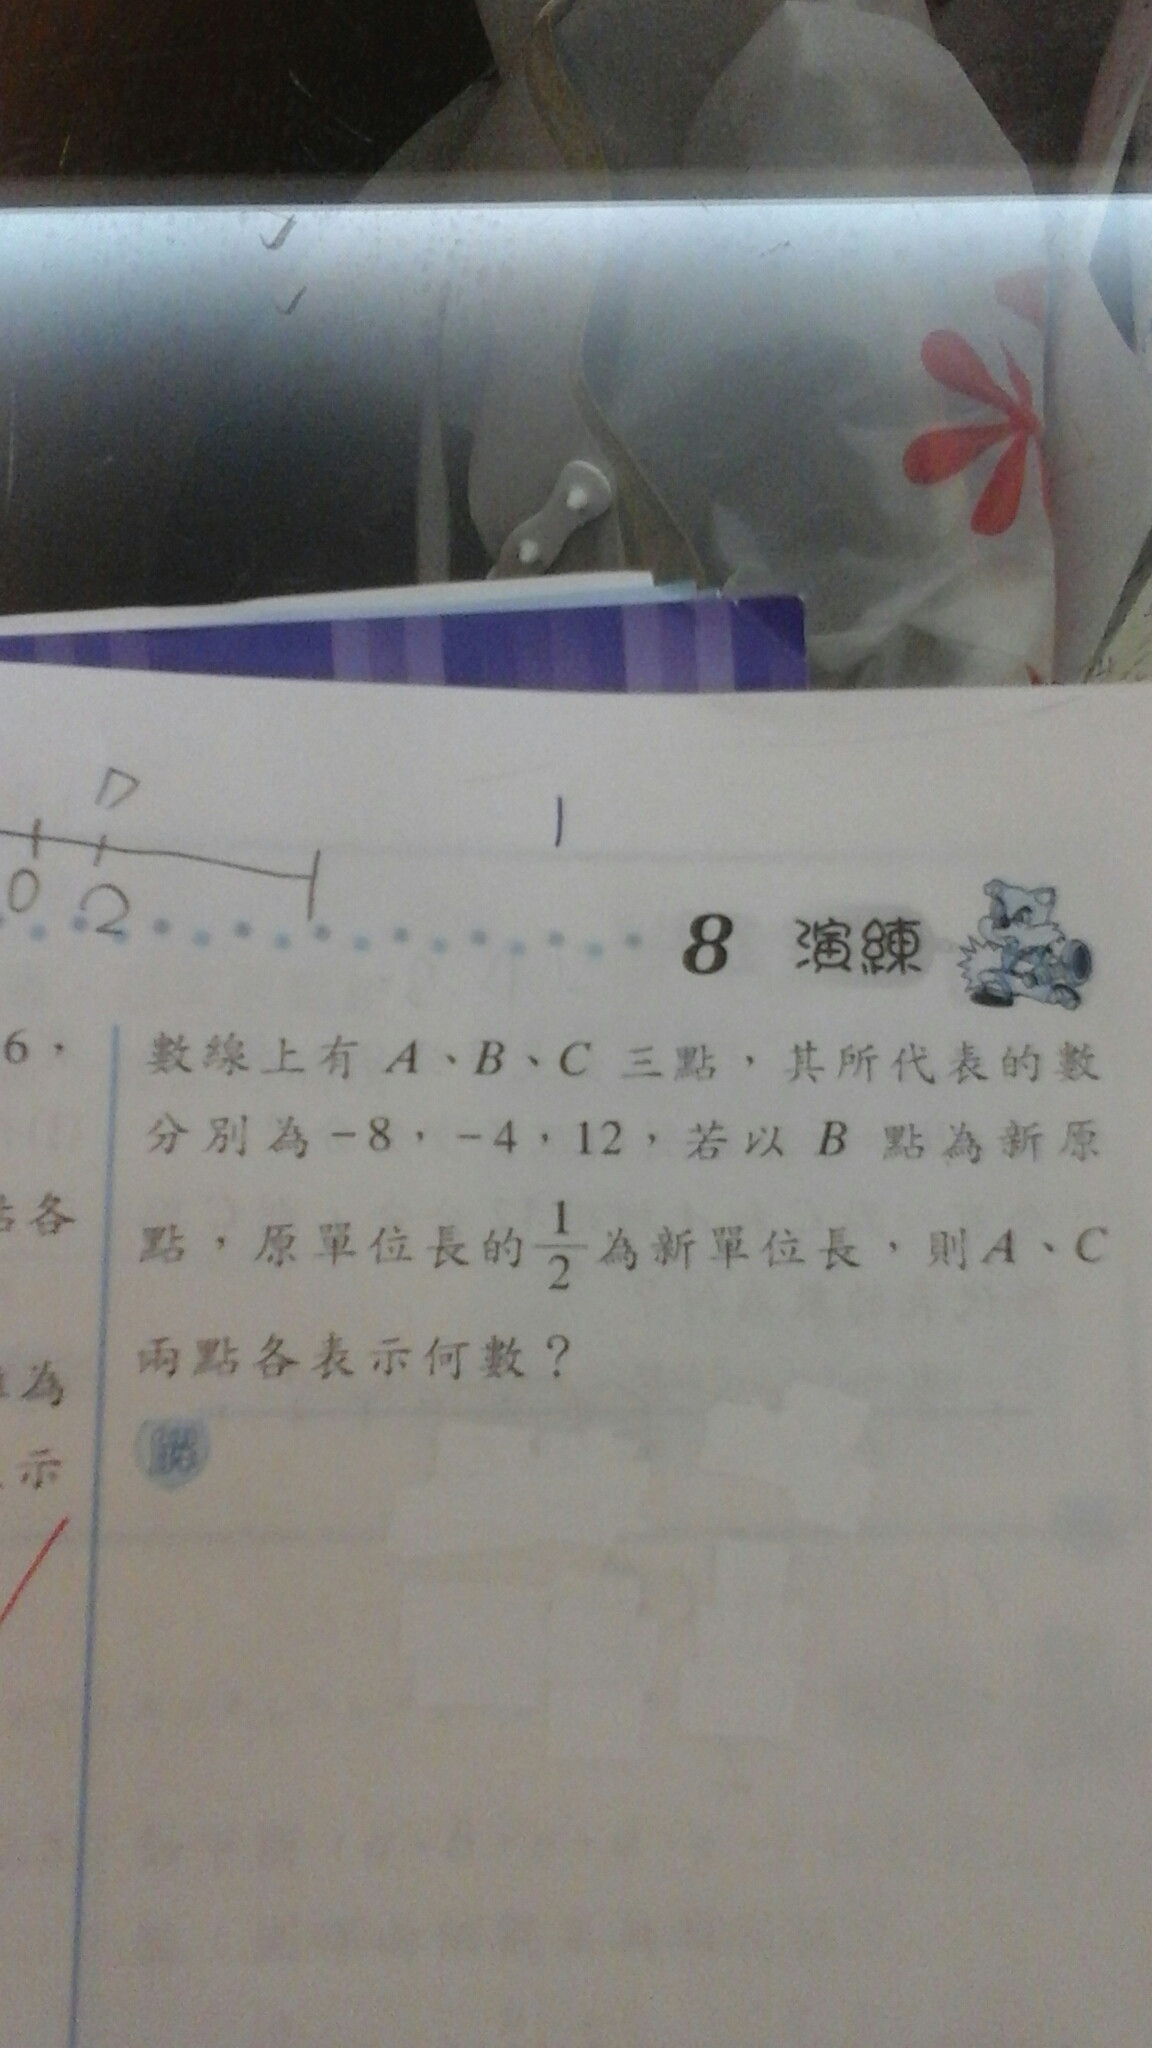 D
0 2
8 演練
6，
數線上有 A、B、C 三點，其所代表的數
分別為 -8，-4，12，若以 B 點為新原
點，原單位長的 1/2 為新單位長，則 A、C
兩點各表示何數？
各
為
示